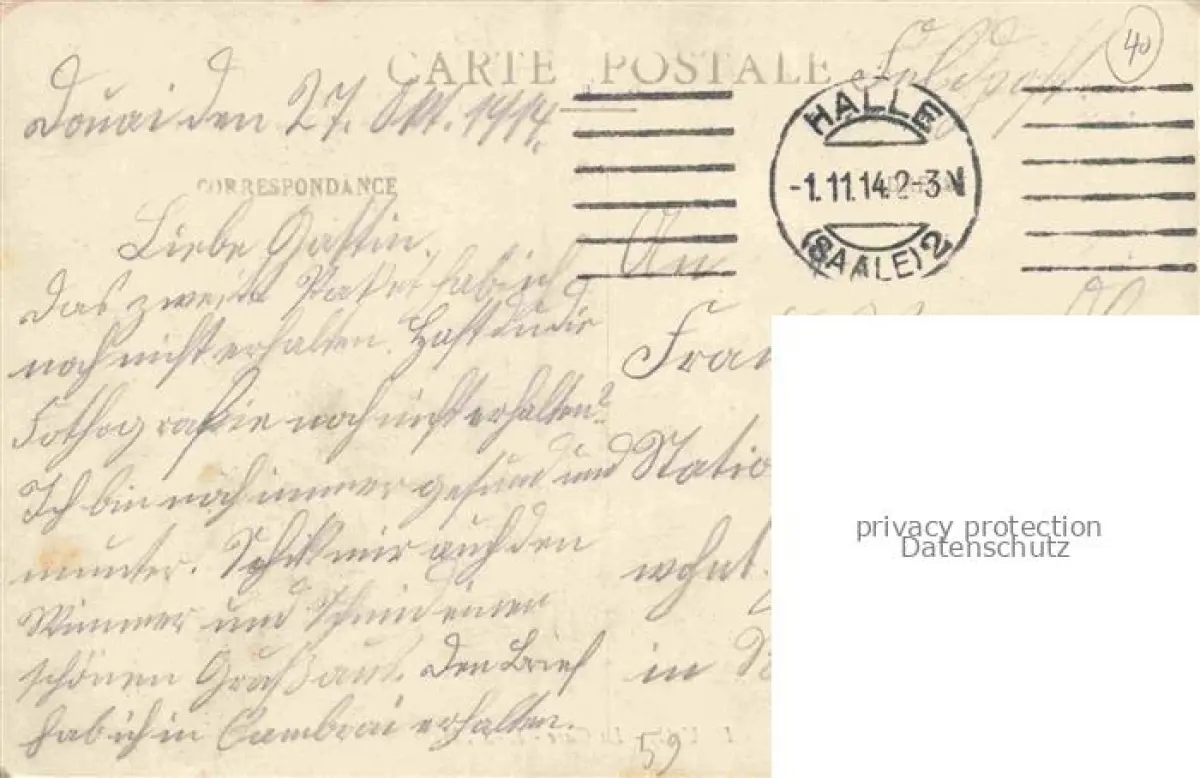 CARTE POSTALE
Feldpost.
40
Douai den 27. Okt. 1914.
HALLE
-1.11.14.2-3 V
(SAALE) 2
CORRESPONDANCE
Liebe Gattin.
Das zweite Paket hab ich
noch nicht erhalten. Hast du die
Fothografie noch nicht erhalten?
Ich bin noch immer gesund und
munter. Schik mir auch den
Wimmer und Schmid einen
schönen Gruß aus. Den Brief
hab ich in Cambrai erhalten.
An
Frau
Statio
wohnt
in
59
privacy protection
Datenschutz